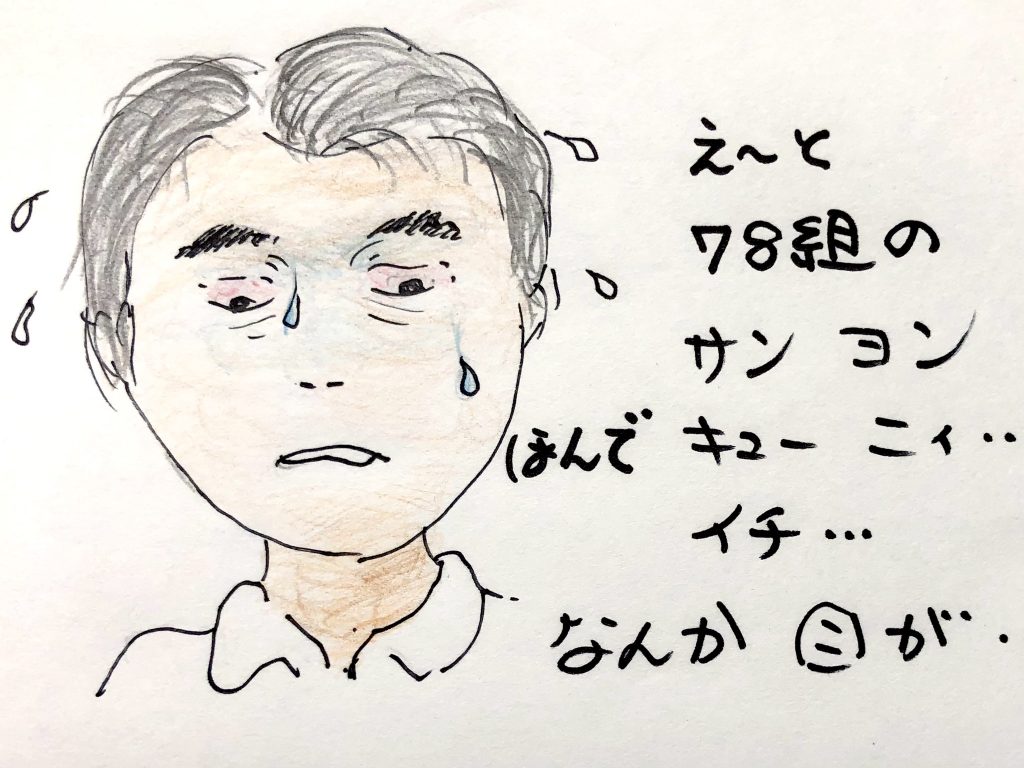 え〜と
78組の
サン ヨン
ほんで キュー ニィ‥
イチ…
なんか 目が・